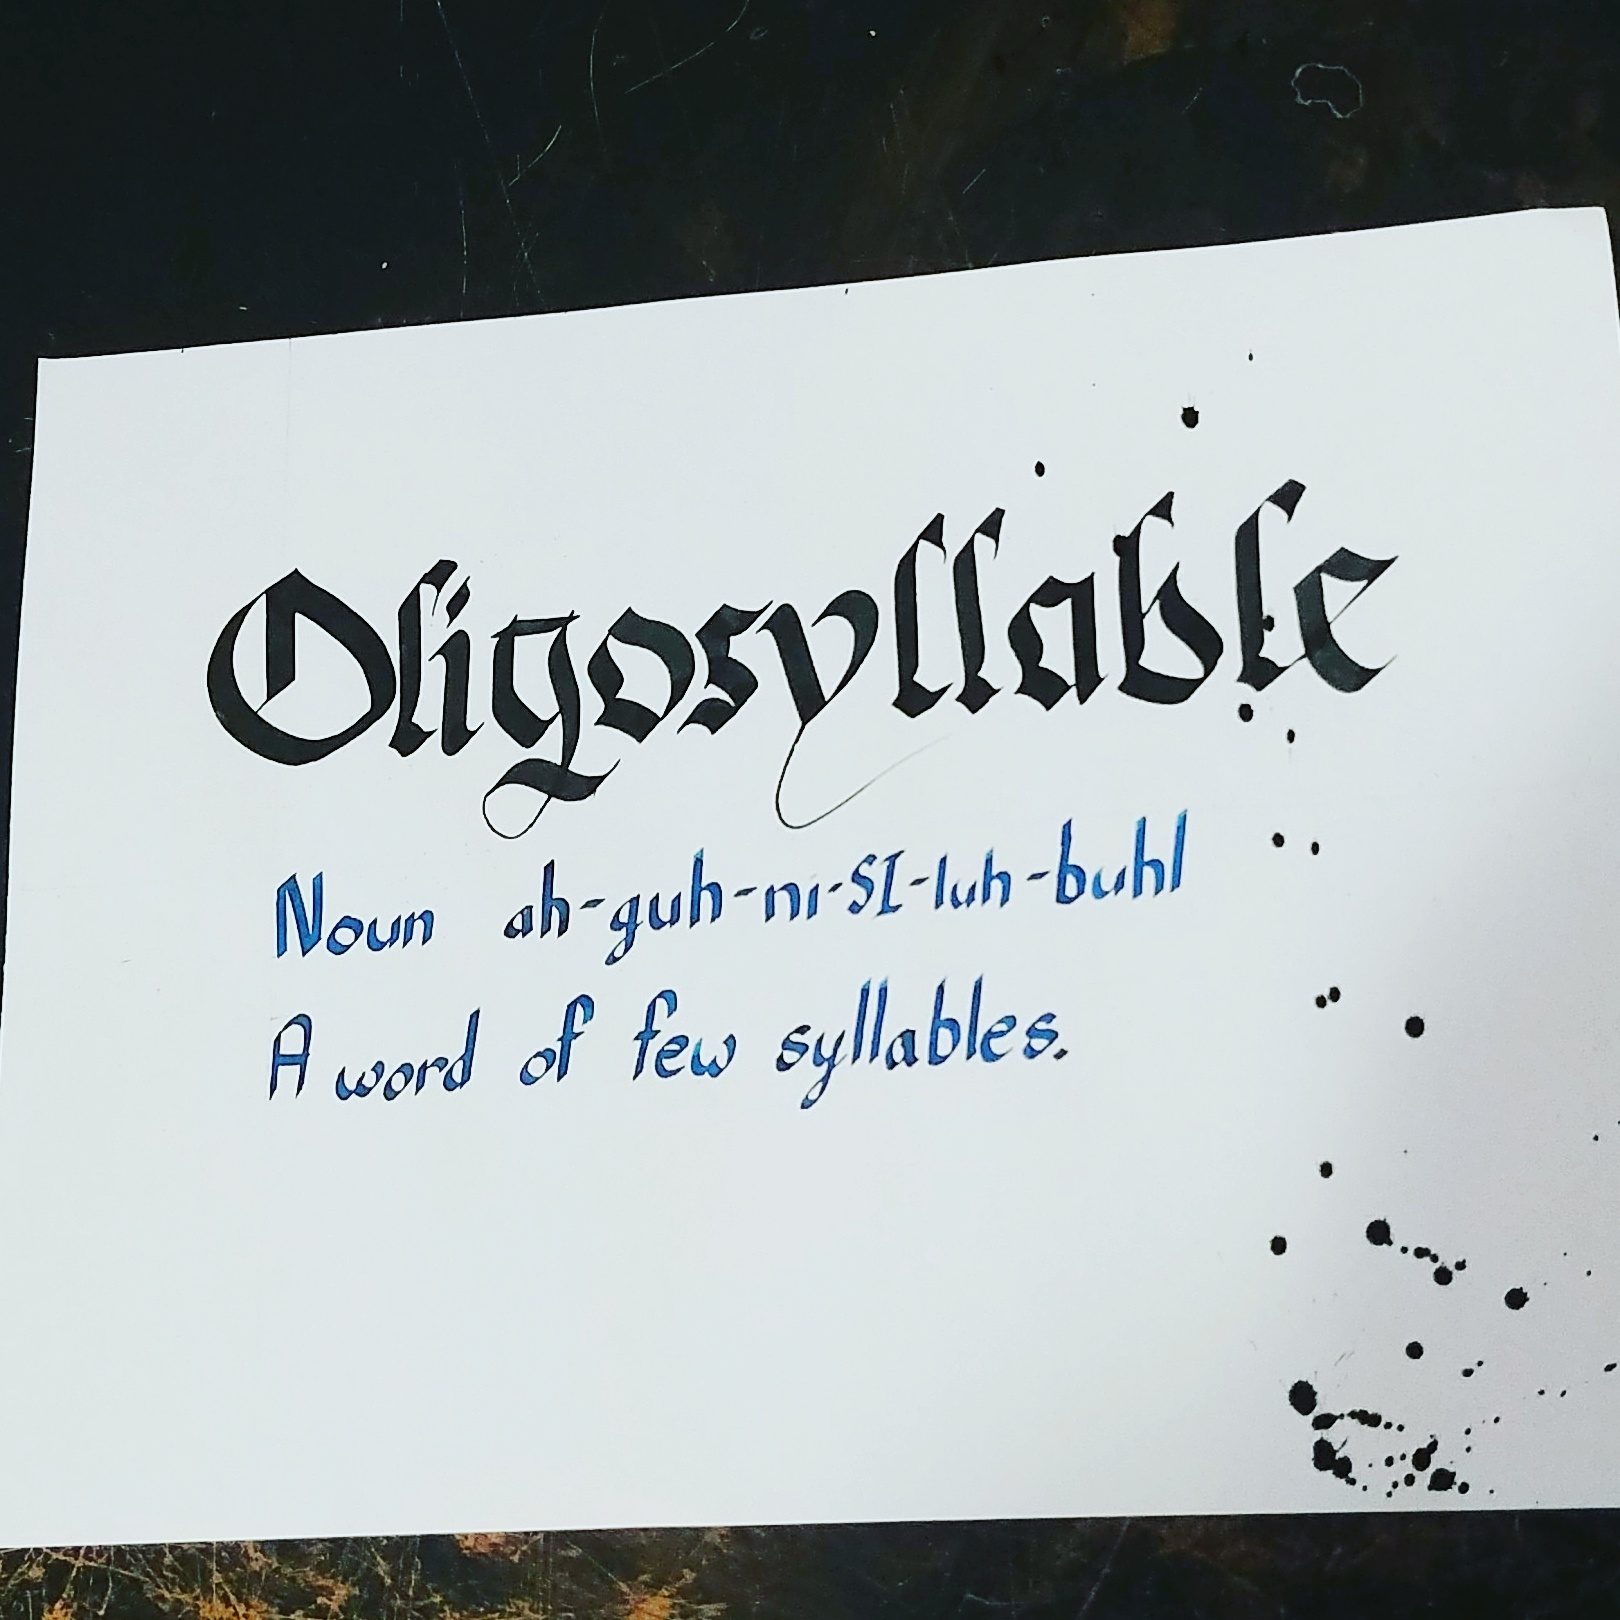 Oligosyllable
Noun ah-guh-ni-SI-luh-buhl
A word of few syllables.